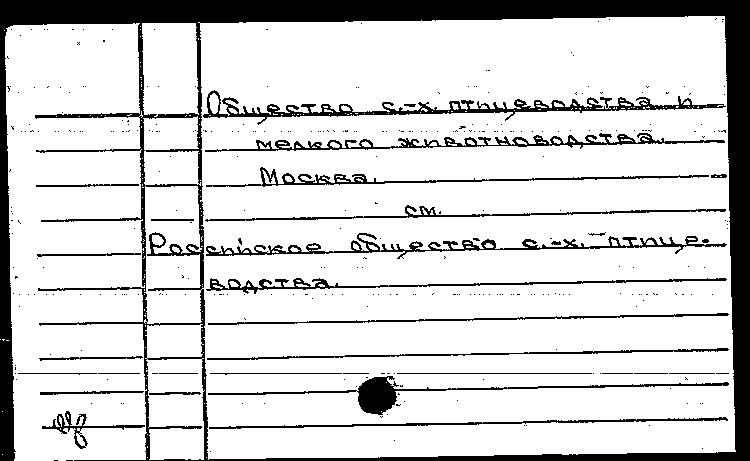 Общество с.-х. птицеводства и
мелкого животноводства.
Москва.
см.
Российское общество с.-х. птице-
водства.